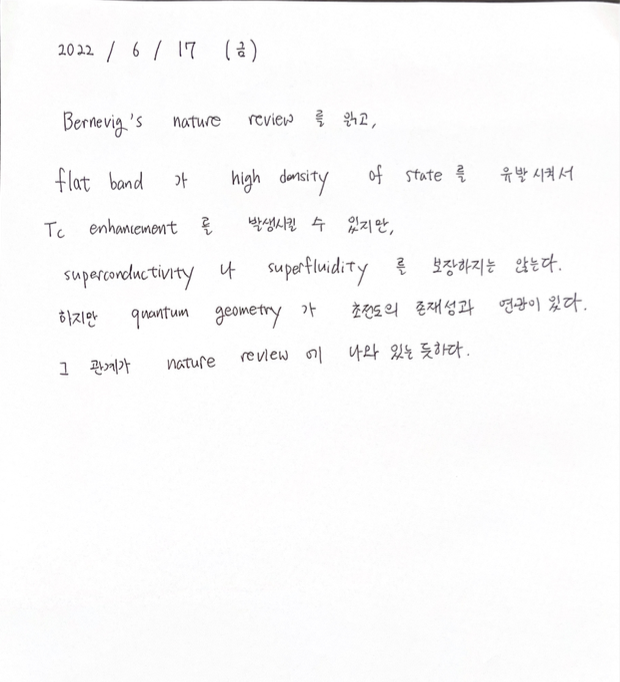 2022 / 6 / 17 (금)
Bernevig's nature review 를 읽고,
flat band 가 high density of state 를 유발시켜서
Tc enhancement 를 발생시킬 수 있지만,
superconductivity 나 superfluidity 를 보장하지는 않는다.
하지만 quantum geometry 가 초전도의 존재성과 연관이 있다.
그 관계가 nature review 에 나와 있는 듯하다.